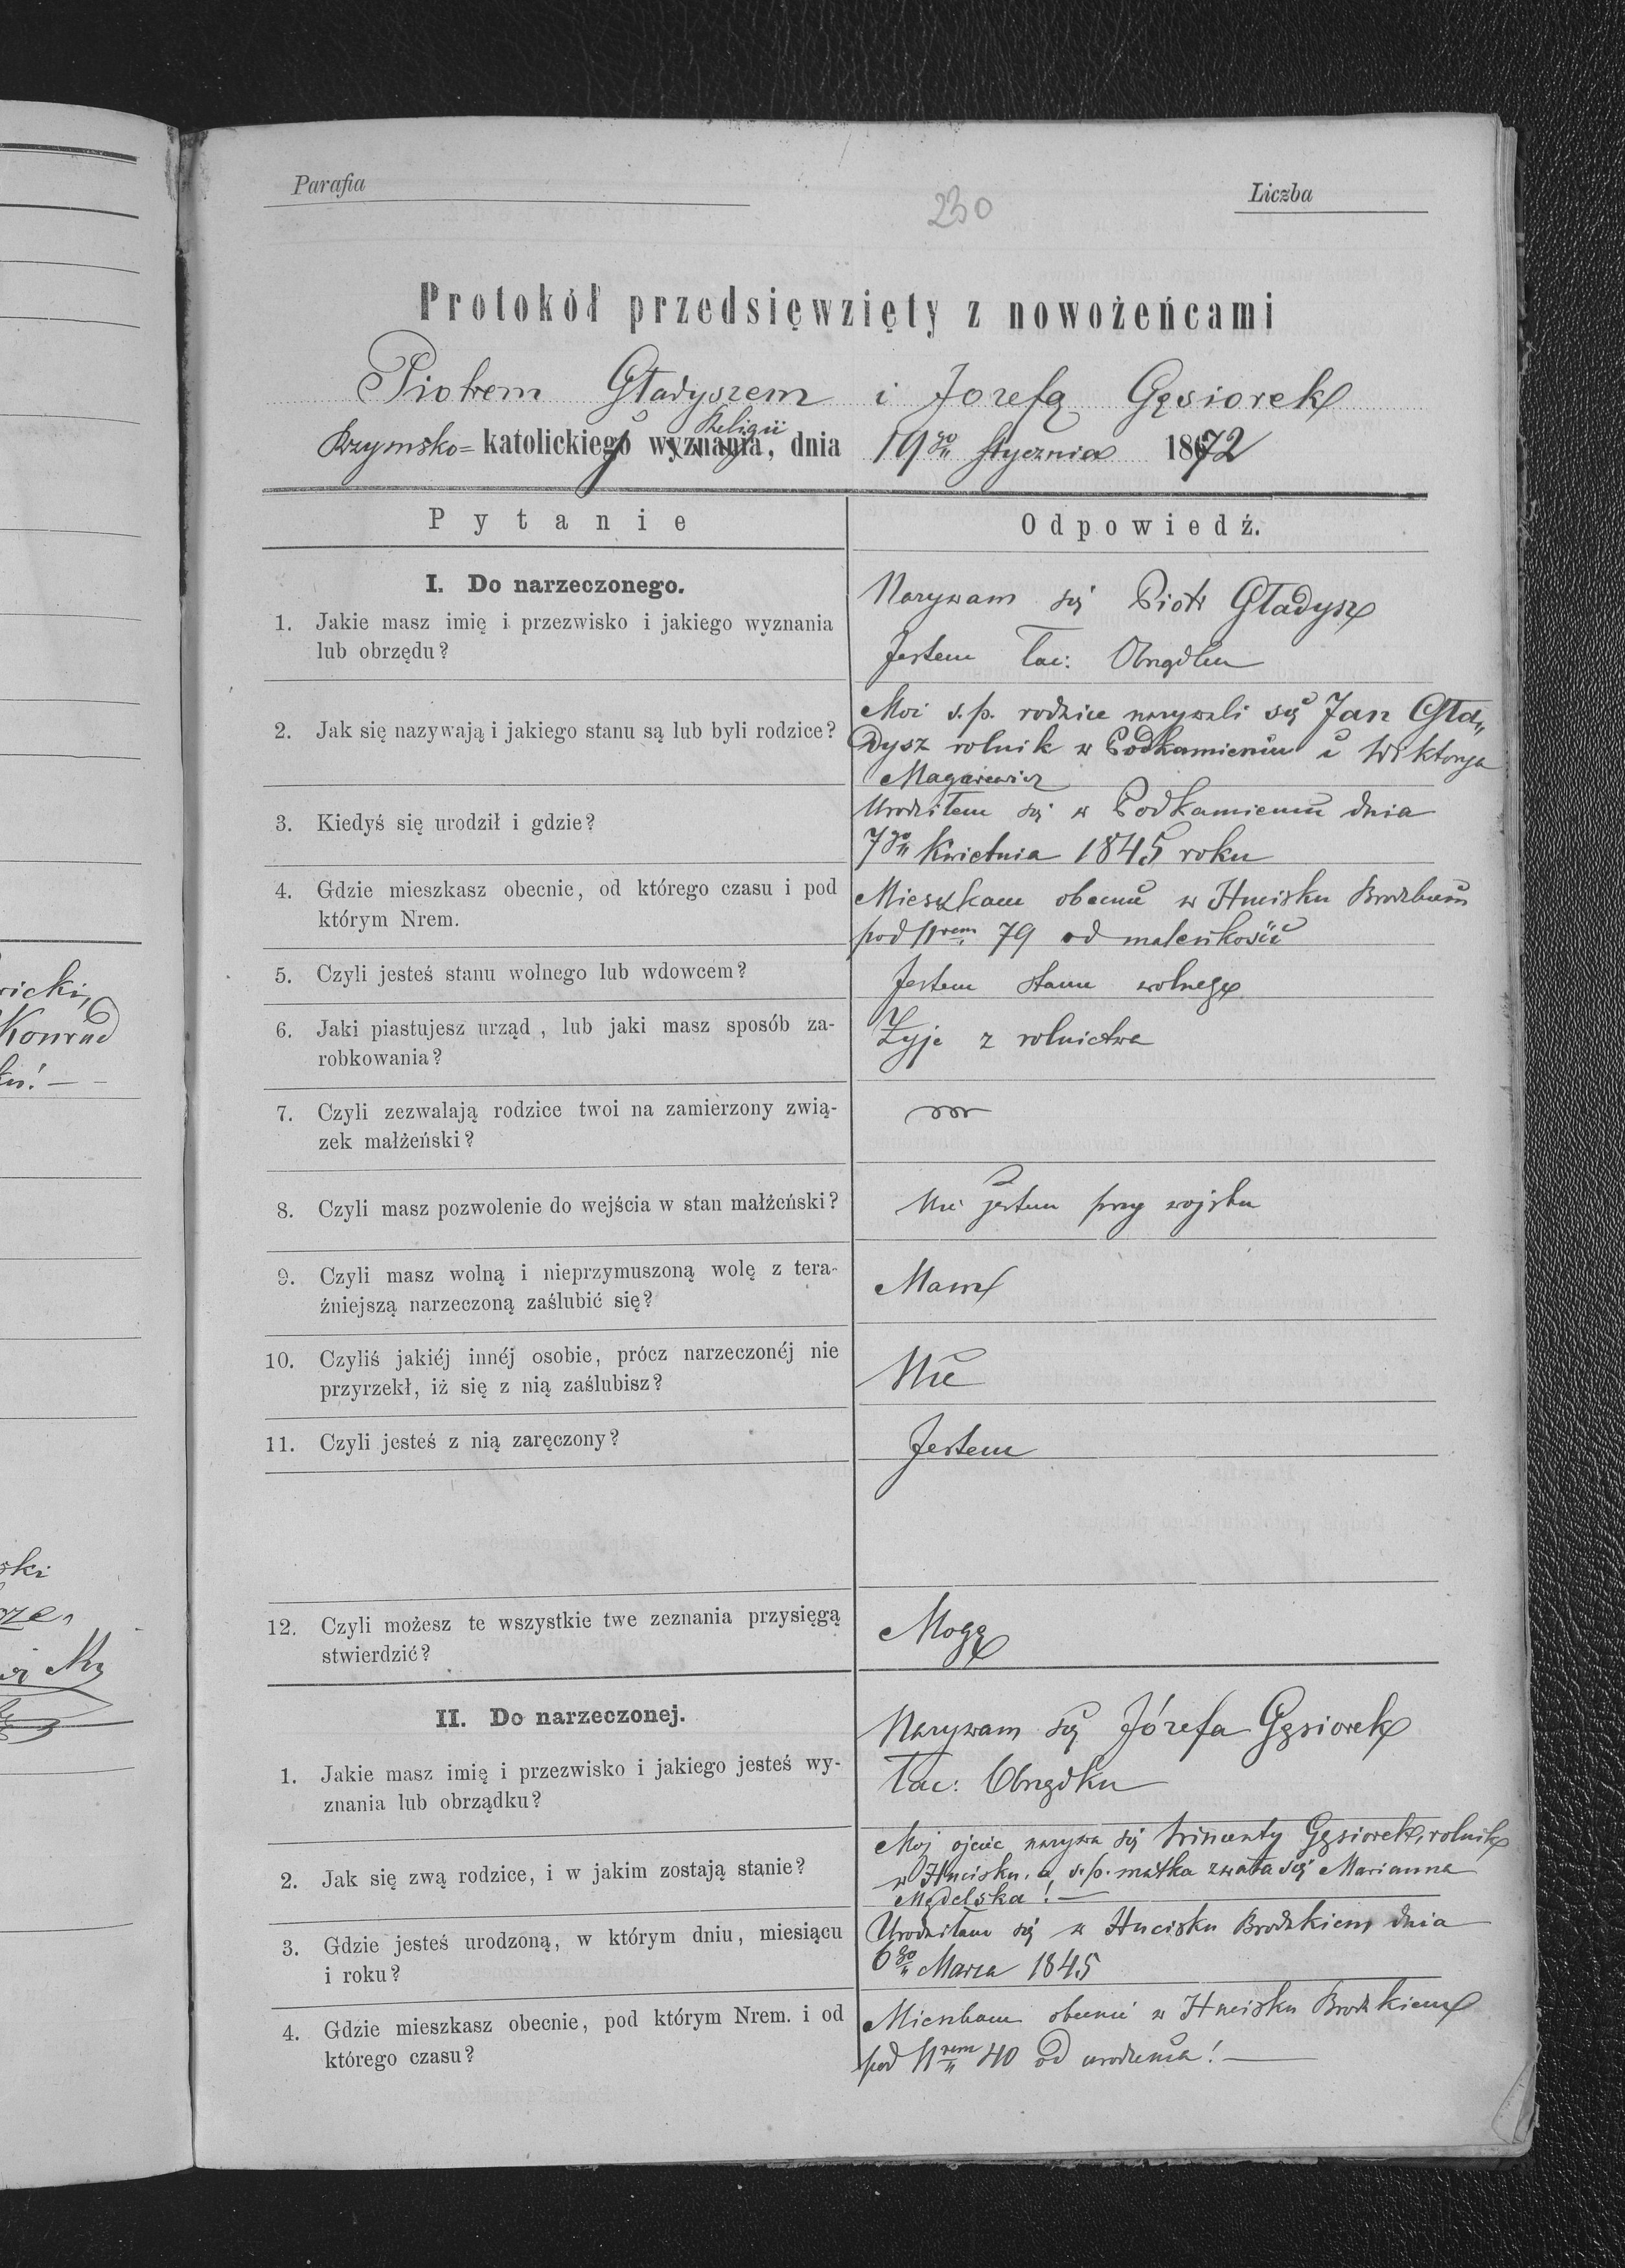 Parafia
230
Liczba
Protokół przedsięwzięty z nowożeńcami
Piotrem Gładyszem i Jozefą Gęsiorek
Rzymsko= katolickiego wyznania, dnia 19go Stycznia 1872
Religii
Pytanie
Odpowiedź.
I. Do narzeczonego.
1. Jakie masz imię i przezwisko i jakiego wyznania
lub obrzędu?
Nazywam się Piotr Gładysz
Jestem łac: Obrządku
2. Jak się nazywają i jakiego stanu są lub byli rodzice?
Moi s.p. rodzice nazywali się Jan Gła„
dysz rolnik w Podkamieniu i Wiktorya
3. Kiedyś się urodził i gdzie?
Urodziłem się w Podkamieniu dnia
7go Kwietnia 1845 roku
4. Gdzie mieszkasz obecnie, od którego czasu i pod
którym Nrem.
Mieszkam obecnie w Hucisku
pod Nrem 79 od maleńkości
5. Czyli jesteś stanu wolnego lub wdowcem?
Jestem stanu wolnego
6. Jaki piastujesz urząd, lub jaki masz sposób za-
robkowania?
Żyje z rolnictwa
7. Czyli zezwalają rodzice twoi na zamierzony zwią-
zek małżeński?
8. Czyli masz pozwolenie do wejścia w stan małżeński?
Nie jestem przy wojsku
9. Czyli masz wolną i nieprzymuszoną wolę z tera-
źniejszą narzeczoną zaślubić się?
Mam
10. Czyliś jakiéj innéj osobie, prócz narzeczonéj nie
przyrzekł, iż się z nią zaślubisz?
Nie
11. Czyli jesteś z nią zaręczony?
Jestem
12. Czyli możesz te wszystkie twe zeznania przysięgą
stwierdzić?
Mogę
II. Do narzeczonej.
1. Jakie masz imię i przezwisko i jakiego jesteś wy-
znania lub obrządku?
Nazywam się Józefa Gęsiorek
łac: Obrządku
2. Jak się zwą rodzice, i w jakim zostają stanie?
Moj ojciec nazywa się Wincenty Gęsiorek, rolnik
w Hucisku, a s.p. matka zwała się Marianna
3. Gdzie jesteś urodzoną, w którym dniu, miesiącu
i roku?
Urodziłam się w Hucisku Brodzkiem dnia
6go Marca 1845
4. Gdzie mieszkasz obecnie, pod którym Nrem. i od
którego czasu?
Mieszkam obecnie w Hucisku Brodzkiem
pod Nrem 40 od urodzenia!
wicki,
Konrad
ski